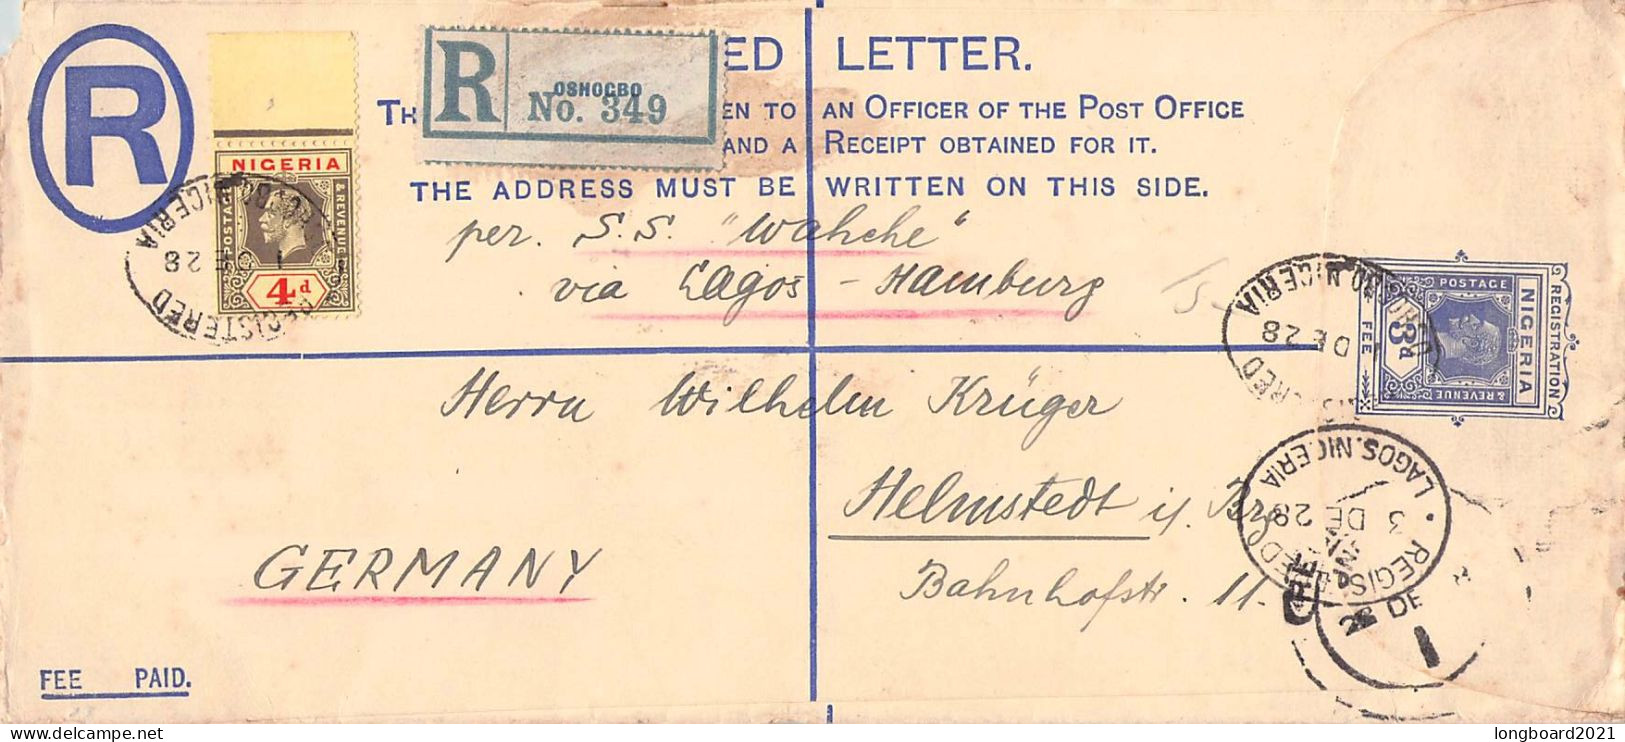 R
R
OSHOGBO
No. 349
ED LETTER.
TH EN TO AN OFFICER OF THE POST OFFICE
AND A RECEIPT OBTAINED FOR IT.
THE ADDRESS MUST BE WRITTEN ON THIS SIDE.
NIGERIA
POSTAGE
& REVENUE
4d
REGISTERED
NIGERIA
1 DE 28
per. S.S. "Wahehe"
via Lagos - Hamburg
REGISTRATION
NIGERIA
POSTAGE
& REVENUE
3d
FEE
NIGERIA
1 DE 28
Herrn Wilhelm Krüger
Helmstedt i/. Brg
Bahnhofstr. 11.
GERMANY
REGISTERED
LAGOS. NIGERIA
3 DE 28
DE
FEE PAID.
longboard2021